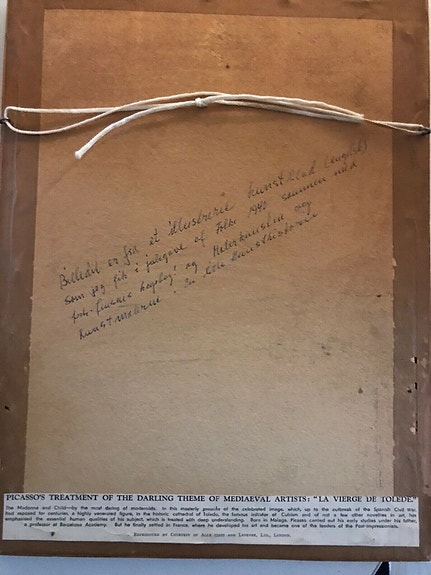 Billedet er fra et illustreret kunstblad (engelsk)
som jeg fik i julegave af Folke 1940 sammen med
kogebog og Malerkunsten og
Kunstmaleren
PICASSO'S TREATMENT OF THE DARLING THEME OF MEDIAEVAL ARTISTS: "LA VIERGE DE TOLEDE."
The Madonna and Child—by the most daring of modernists. In this masterly presentation of the celebrated image, which, up to the outbreak of the Spanish Civil war,
had reposed for centuries, a highly venerated figure, in the historic cathedral of Toledo, the famous initiator of Cubism and of not a few other novelties in art, has
emphasised the essential human qualities of his subject, which is treated with deep understanding. Born in Malaga, Picasso carried out his early studies under his father,
a professor at Barcelona Academy. But he finally settled in France, where he developed his art and became one of the leaders of the Post-Impressionists.
REPRODUCED BY COURTESY OF ALEX REID AND LEFEVRE, LTD., LONDON.